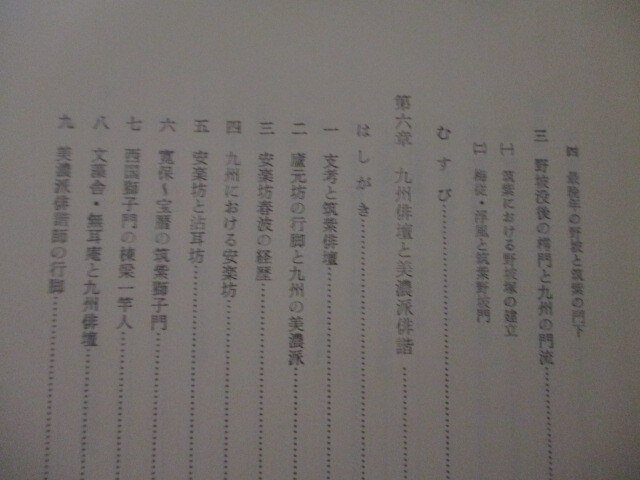 四 最晩年の野坡と筑紫の門下
三 野坡没後の樗門と九州の門流
㈠ 筑紫における野坡塚の建立
㈡ 梅従・浮風と筑紫野坡門
むすび
第六章 九州俳壇と美濃派俳諧
はしがき
一 支考と筑紫俳壇
二 廬元坊の行脚と九州の美濃派
三 安楽坊春波の経歴
四 九州における安楽坊
五 安楽坊と沾耳坊
六 寛保〜宝暦の筑紫獅子門
七 西国獅子門の棟梁一竿人
八 文藻舎・無耳庵と九州俳壇
九 美濃派俳諧師の行脚